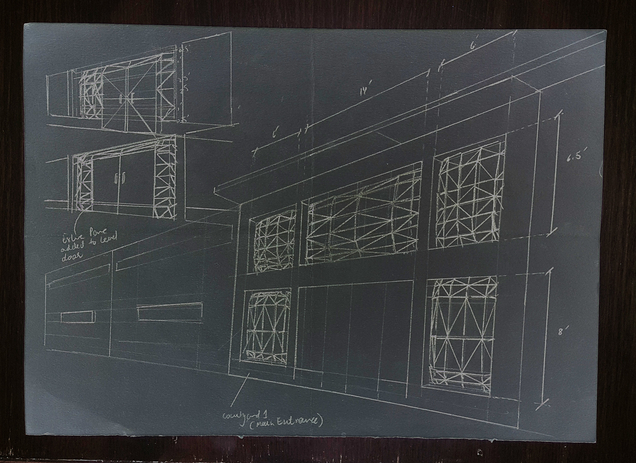 6'
14'
6'
6.5'
8'
Extra Pane
added to level
door
courtyard 1
(Main Entrance)